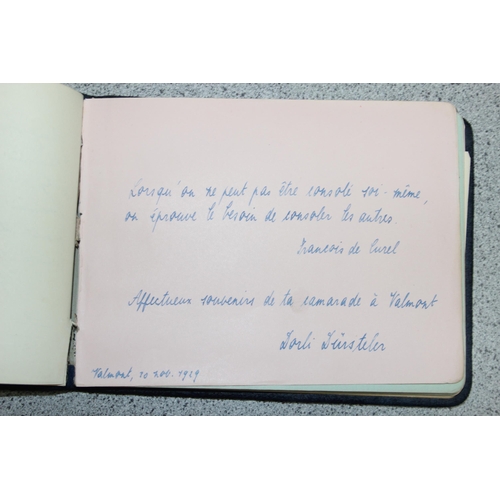 Lorsqu'on ne peut pas être consolé soi-même,
on éprouve le besoin de consoler les autres.
François de Curel
Affectueux souvenirs de ta camarade à Valmont
Dorli Dürsteler
Valmont, 20 nov. 1929